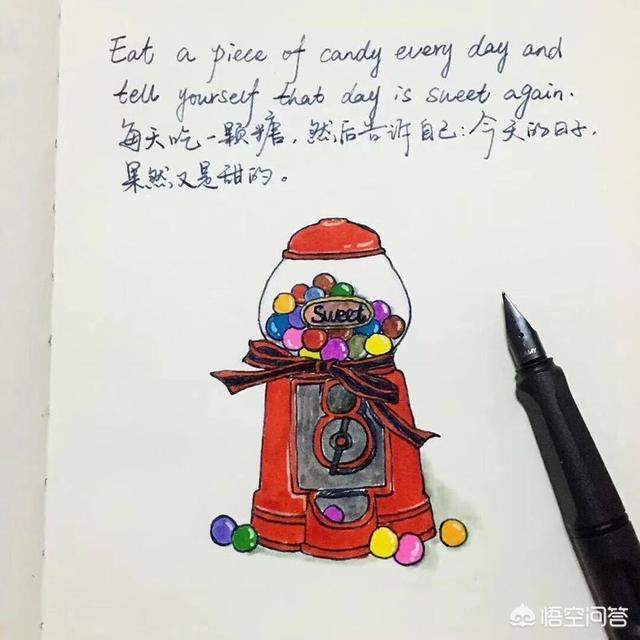 Eat a piece of candy every day and
tell yourself that day is sweet again.
每天吃一颗糖，然后告许自己：今天的日子，
果然又是甜的。
Sweet
LAMY
悟空问答